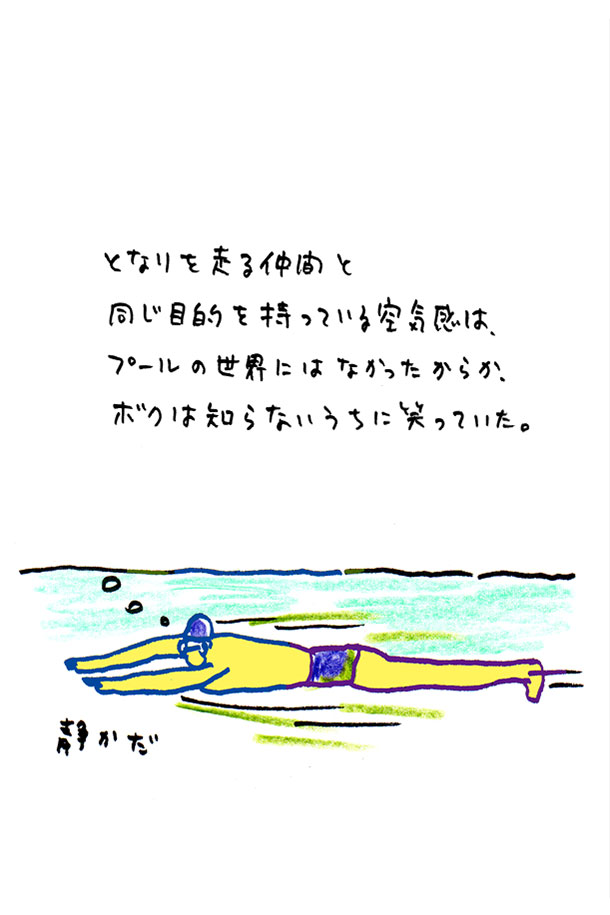 となりを走る仲間と
同じ目的を持っている空気感は、
プールの世界にはなかったからか、
ボクは知らないうちに笑っていた。
静かだ